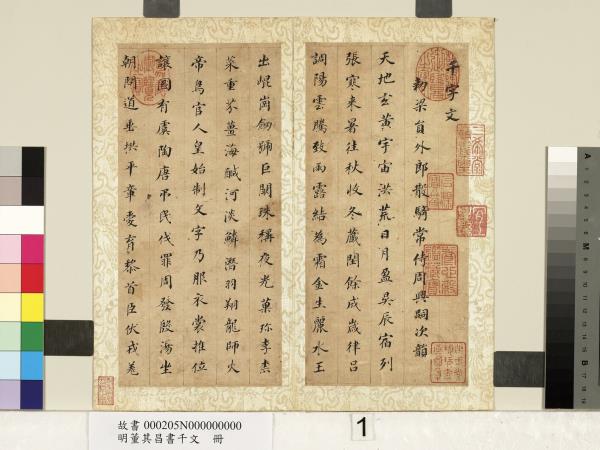 千字文
勑梁員外郎散騎常侍周興嗣次韻
天地玄黃宇宙洪荒日月盈昃辰宿列
張寒来暑往秋收冬藏閏餘成歲律呂
調陽雲騰致雨露結為霜金生麗水玉
出崐崗劒號巨闕珠稱夜光菓珍李柰
菜重芥薑海鹹河淡鱗潛羽翔龍師火
帝鳥官人皇始制文字乃服衣裳推位
讓國有虞陶唐吊民伐罪周發殷湯坐
朝問道垂拱平章愛育黎首臣伏戎羌
故書 000205N000000000
明董其昌書千文 冊
1
A
M
B